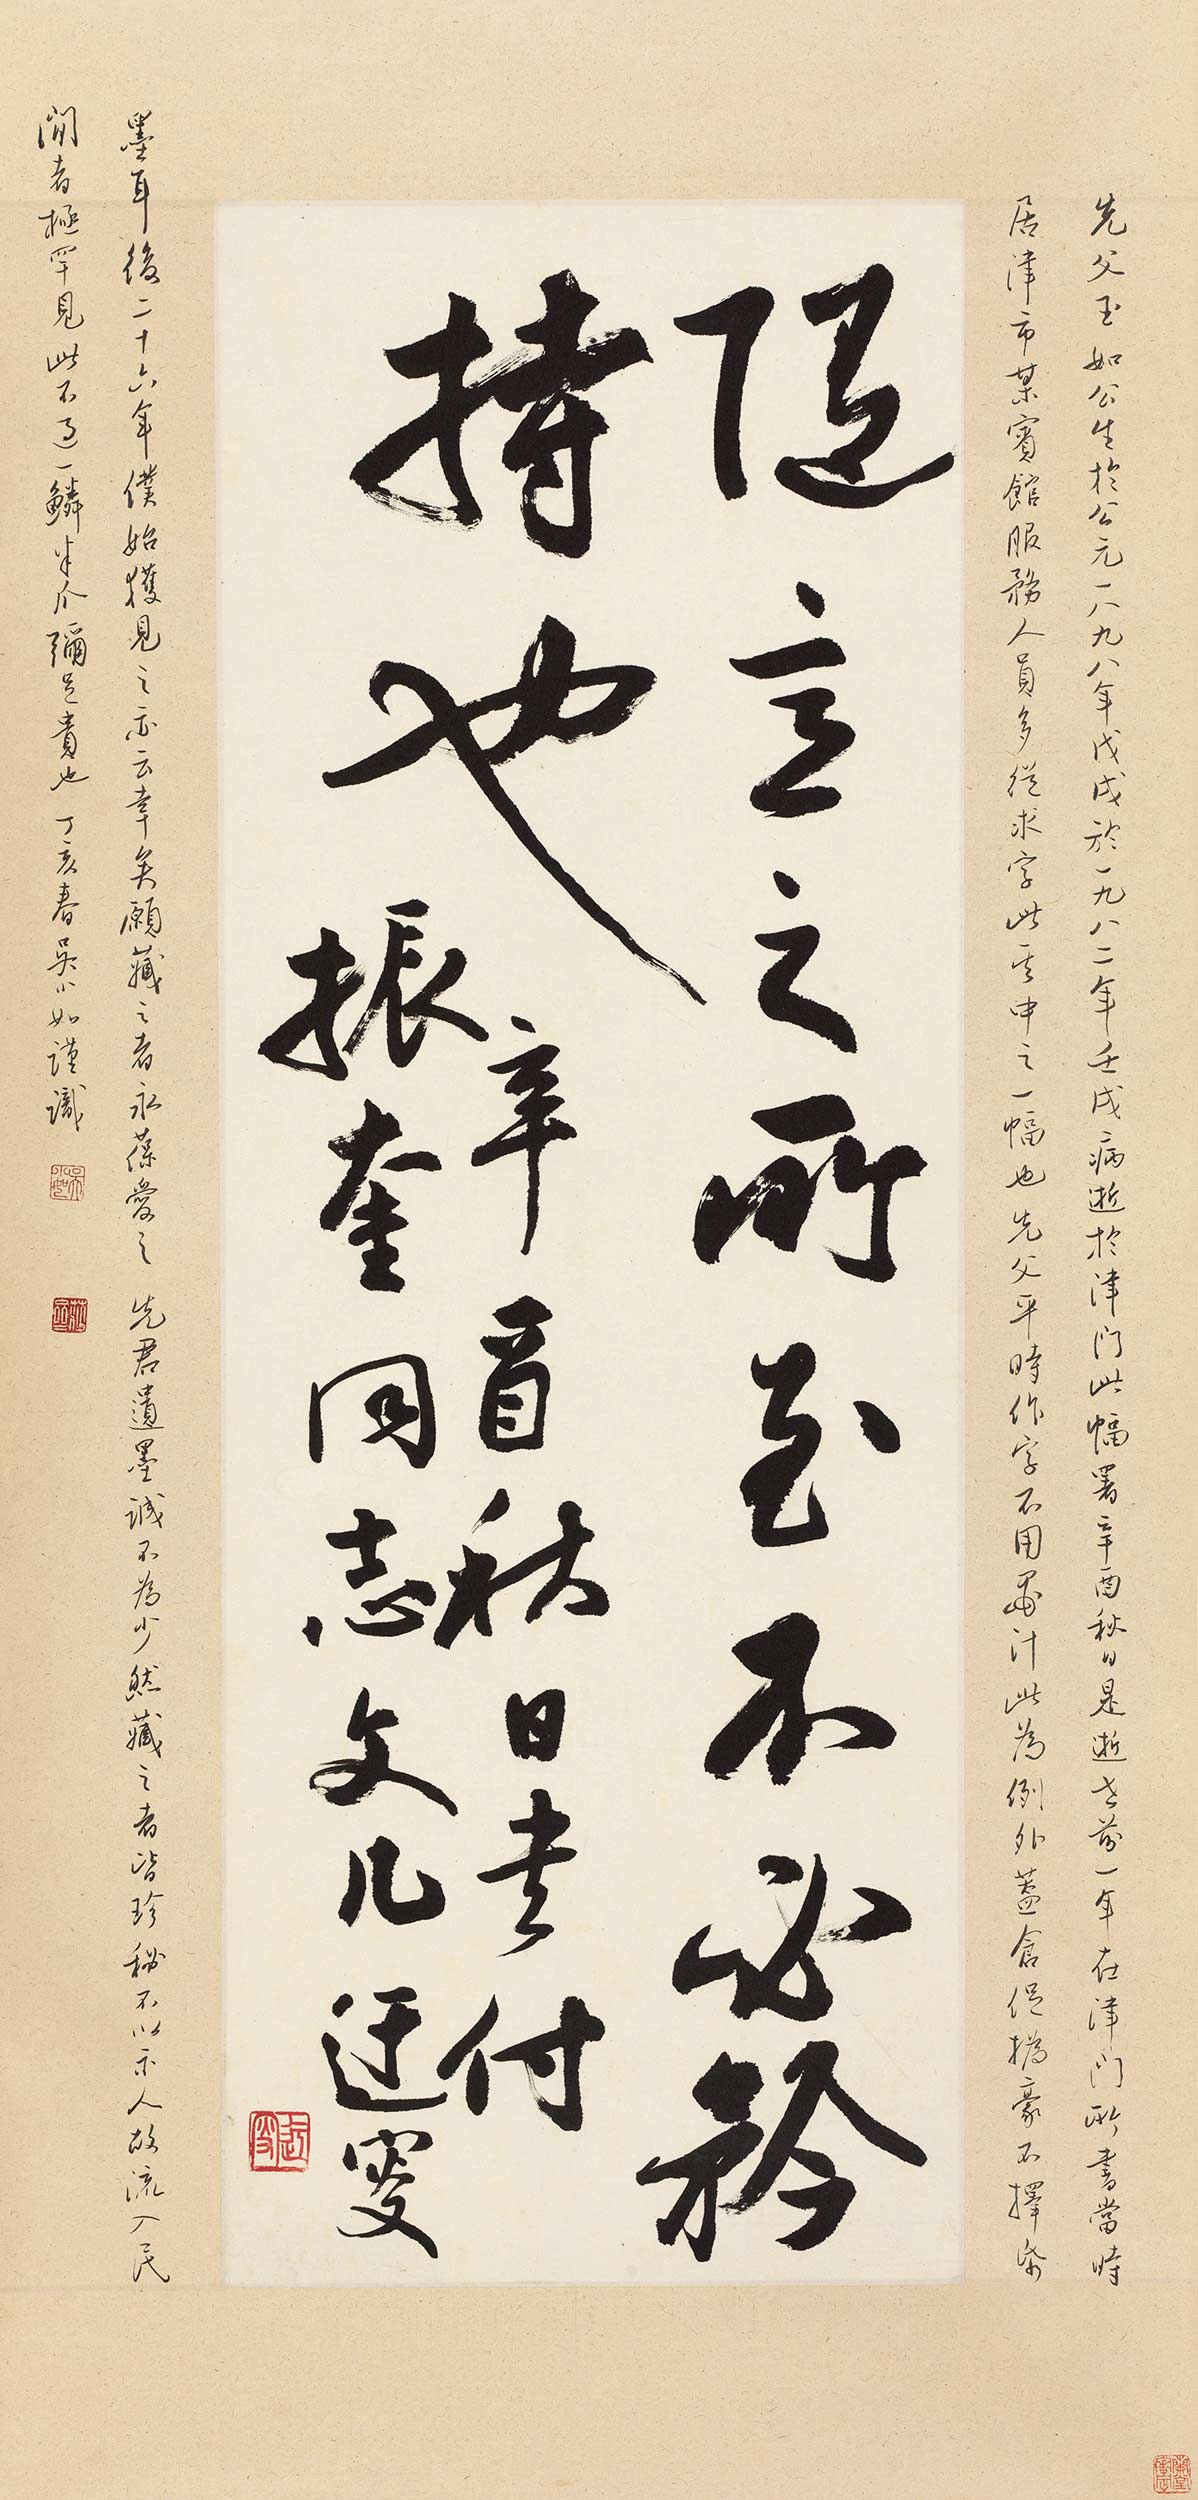 先父玉如公生於公元一八九八年戊戌於一九八二年壬戌病逝於津門此幅署辛酉秋日是逝世前一年在津門所書當時
居津市某賓館服務人員多從求字此其中之一幅也先父平時作字不用墨汁此為例外蓋倉促撝豪不擇紙
随意之所至不必矜
持也
辛酉秋日书付
振奎同志文几迂叟
迂叟
墨耳後二十六年僕始獲見之亦云幸矣願藏之者永葆愛之 先君遺墨誠不為少然藏之者皆珍秘不以示人故流入民
間者極罕見此不過一鱗半爪彌足貴也 丁亥春吳小如謹識
吳小如